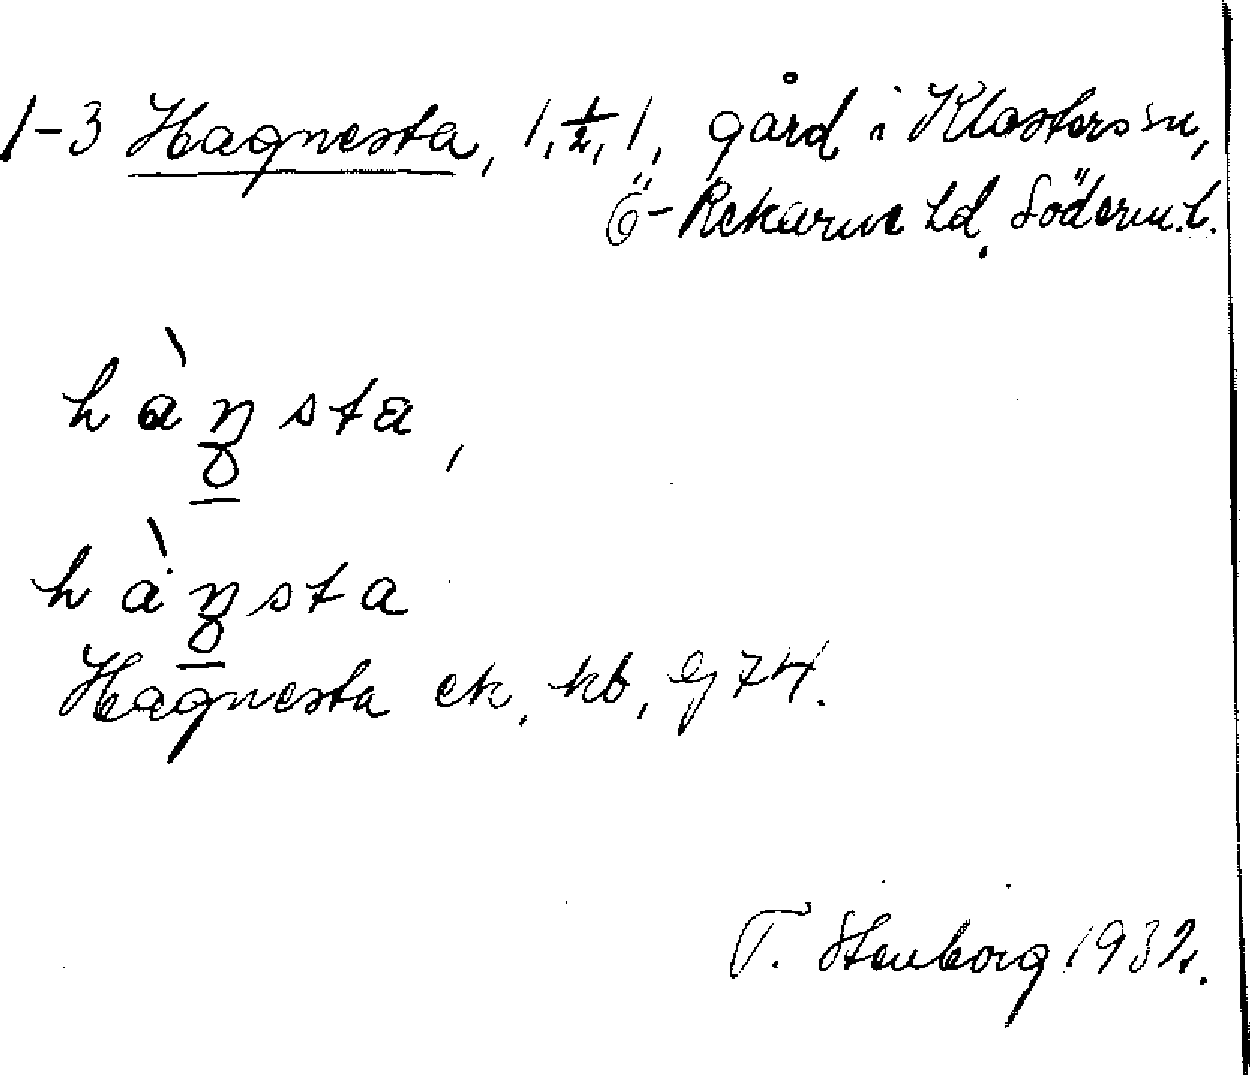 1-3 Hagnesta, 1, 1/2, 1, gård i Klosters sn,
Ö-Rekarne hd. Söderm. l.
hàŋsta,
hàŋsta
Hagnesta ek. kb, Gj 74.
T. Stenborg 1932.